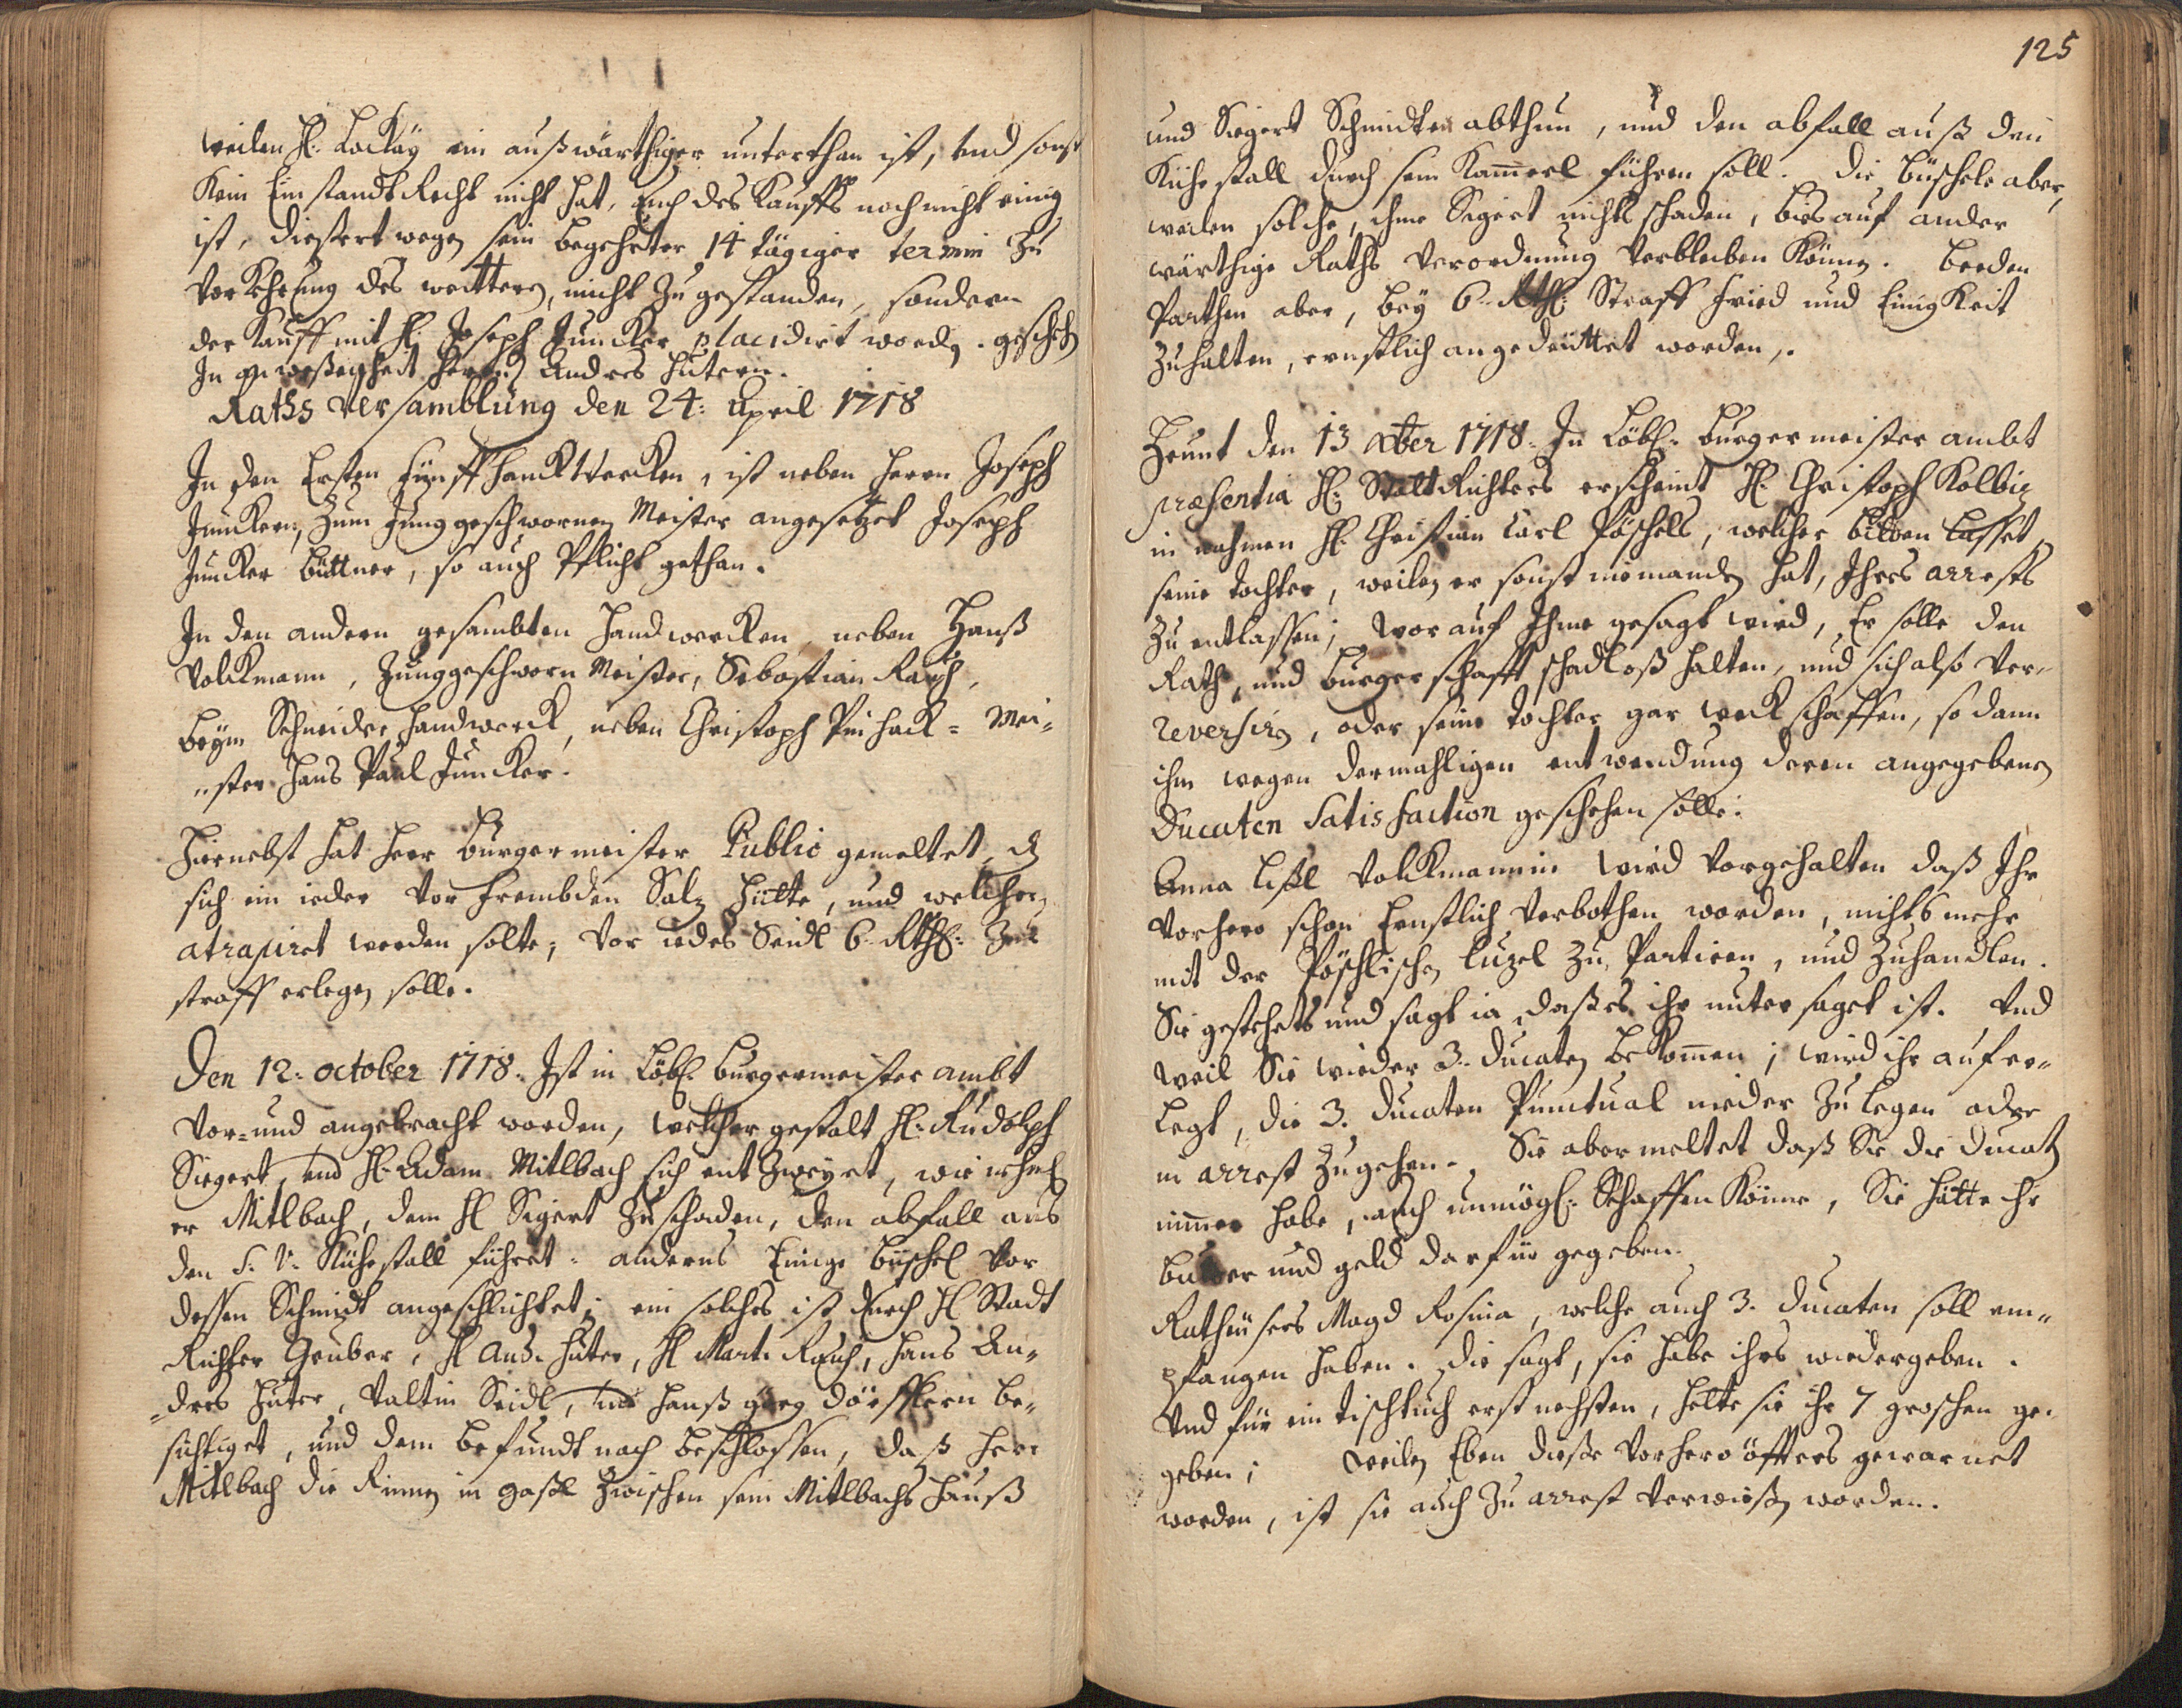 weilen H: Lockay ein außwärthiger unterthan ist, und sonst
Kein Einstandt Recht nicht hat, Auch des Kauffs noch nicht einig
ist, dießertwegen sein begehrter 14 tägiger termin zu
Vorkehrung des weittern, nicht zugestanden, sondern
der Kauff mit H: Joseph Juncker placidirt worden. geschehen
In anweßenheit Herrn Andres Huterer.
Raths Versamblung den 24: April 1718
In den Ersten Fünff Handtwercken, ist neben Herrn Joseph
Junckern, zum Junggeschwornen Meister angesetzet Joseph
Juncker Büttner, so auch Pflicht gethan.
In den andern gesambten Handwercken, neben Hanß
Volckmann, Junggeschworn Meister, Sebastian Rauch,
beym Schneider Handwerck, neben Christoph Pinhack = Mei=
"ster Hans Paul Juncker.
Hiernebst hat Herr Burgermeister Public gemeltet, daß
sich ein ieder Vor frembden Saltz hütte, und welcher
atrapiret werden solte, Vor iedes Seidl 6. Rthl: zur
straff erlegen solle.
Den 12. october 1718. Ist in Löbl: Burgermeister ambt
Vor= und angebracht worden, welcher gestalt H: Rudolph
Siegert, und H: Adam Mitlbach sich entzweyet, wie nehml:
er Mitlbach, dem H: Sigert zu schaden, den abfall aus
den S: V: Kühestall führet: anderns Einige büschel Vor
dessen Schmidt angeschlichtet; ein solches ist durch H: Stadt
Richter Gruber, H: And. Huter, H: Mart. Rauch, Hans An=
=dres Huter, Valtin Seidl, und Hanß Georg Dörfflern be=
sichtiget, und dem befundt nach beschlossen, daß Herr
Mitlbach die Rinnen in gaßl zwischen sein Mitlbachs Hauß
125
und Siegert Schmidten abthun, und den abfall auß den
Kühestall durch sein Kamerl führen soll. Die büschele aber,
weilen solche, ihme Segert nichts schaden, bis auf ander
wärthige Raths Verordnung Verbleiben Können. beeden
Parthen aber, bey 6. Rthl: Straff Fried und Einigkeit
zuhalten, ernstlich angedeüttet worden.
Heunt den 13 Xber 1718. In Löbl: burgermeister ambt
præsentia H: StattRichters erscheint H: Christoph Kolbig
in nahmen H: Christian Carl Pöschels, welcher bitten lasset,
seine tochter, weilen er sonst niemanden hat, Ihres arrests
zu entlassen; worauf Ihme gesagt wird, Er solle den
Rath, und burgerschafft schadloß halten, und sich also Ver=
reversirn, oder seine tochter gar weckschaffen, so dann
ihm wegen dermahligen entwendung deren angegebenen
Ducaten Satisfaction geschehen solle.
Anna Lißl Volckmannin wird Vorgehalten daß Ihr
Vorhero schon Ernstlich Verbothen worden, nichts mehr
mit der Pöschlischen Luzel zu Partiren, und zuhandlen.
Sie gestehets und sagt ia, daß es ihr untersaget ist. Und
weil Sie wieder 3. Ducaten bekomen; wird ihr aufer=
Legt, die 3. Ducaten Punctual nieder zu legen oder
in arrest zugehen. Sie aber meltet daß Sie die Ducaten
nimmer habe, auch unmögl: Schaffen Könne, Sie hätte ihr
butter und geld darfür gegeben.
Magd Rosina, welche auch 3. Ducaten soll em=
pfangen haben. Die sagt, sie habe ihrs wiedergeben.
Und für ein tischtuch erst nechsten, hette sie ihr 7 groschen ge=
geben; weilen Eben dieße Vorhero öffters gewarnet
worden, ist sie auch zu arrest Verwießen worden.